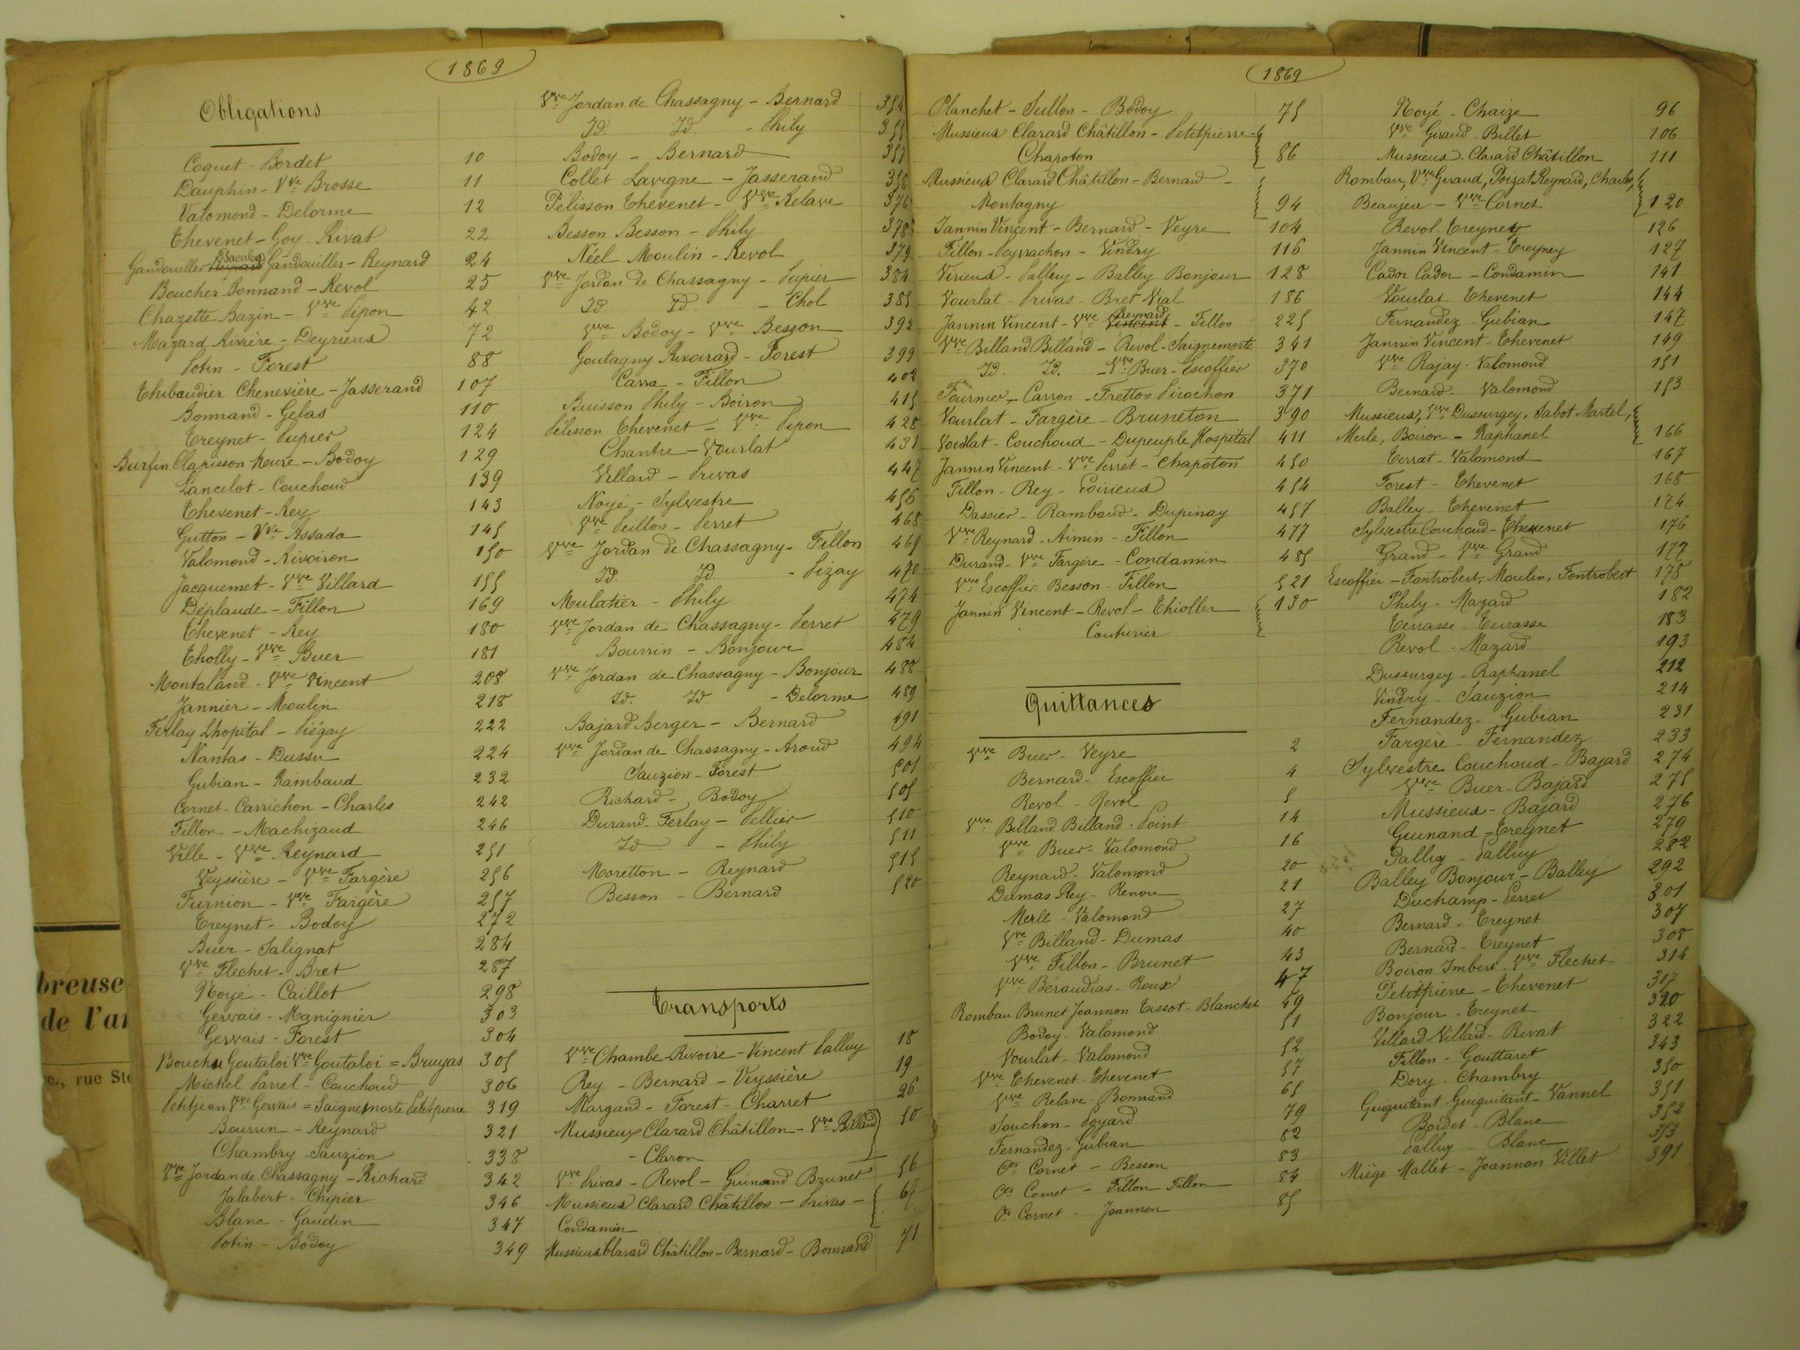 1869
Obligations
Coquet - Bordet 10
Dauphin - Vve Brosse 11
Valomond - Delorme 12
Thevenet - Goy - Rivat 22
Gandouiller Gandouiller - Reynard 24
Boucher Bonnand - Revol 25
Chazette Bazin - Vve Pipon 42
Mazard Rivière - Deyrieux 72
Potin - Forest 88
Thibaudier Chenevière - Jasserand 107
Bonnand - Gelas 110
Treynet - Pupier 124
Burfin Clapisson Meure - Bodoy 129
Lancelot - Couchoud 139
Thevenet - Rey 143
Gutton - Vve Assada 145
Valomond - Rivoiron 150
Jacquemet - Vve Villard 155
Déplaude - Fillon 169
Thevenet - Rey 180
Tholly - Vve Buer 181
Montaland - Vve Vincent 208
Jannier - Moulin 218
Ferlay Lhopital - Piégay 222
Nantas - Dussu 224
Gubian - Rambaud 232
Cornet - Carrichon - Charles 242
Fillon - Machizaud 246
Ville - Vve Reynard 251
Veyssière - Vve Fargère 256
Furnion - Vve Fargère 257
Treynet - Bodoy 272
Buer - Salignat 284
Vve Flechet - Bret 287
Noyé - Caillot 298
Gervais - Manignier 303
Gervais - Forest 304
Bouchu Goutaloi Vve Goutaloi = Bruyas 305
Michel Parrel - Couchoud 306
Petitjean Vve Gervais = Saignemorte Petitpierre 319
Bourrin - Reynard 321
Chambry - Sauzion 338
Vve Jordan de Chassagny - Richard 342
Jalabert - Chipier 346
Blanc - Gaudin 347
Potin - Bodoy 349
Vve Jordan de Chassagny - Bernard 354
Id. Id. - Phily 355
Bodoy - Bernard 357
Collet Lavigne - Jasserand 358
Pélisson Thevenet - Vve Relave 376
Besson Besson - Phily 378
Néel Moulin - Revol 379
Vve Jordan de Chassagny - Pupier 384
Id. Id. - Chol 385
Vve Bodoy - Vve Besson 392
Goutagny Rivoirard - Forest 399
Carra - Fillon 402
Buisson Phily - Boiron 415
Pélisson Thevenet - Vve Pipon 428
Chantre - Vourlat 431
Villard - Privas 447
Noyé - Sylvestre 456
Vve Peillon - Perret 468
Vve Jordan de Chassagny - Fillon 469
Id. Id. - Pizay 470
Mulatier - Phily 474
Vve Jordan de Chassagny - Perret 479
Bourrin - Bonjour 484
Vve Jordan de Chassagny - Bonjour 488
Id. Id. - Delorme 489
Bajard Berger - Bernard 491
Vve Jordan de Chassagny - Aroud 494
Sauzion - Forest 501
Richard - Bodoy 505
Durand - Ferlay - Pellier 510
Id - Phily 511
Moretton - Reynard 515
Besson - Bernard 520
Transports
Vve Chambe - Rivoire - Vincent Palluy 18
Rey - Bernard - Veyssière 19
Margand - Forest - Charret 26
Mussieux Clarard Châtillon - Vve Billand 50
- Claron
Vve Privas - Revol - Guinand Brunet 56
Mussieux Clarard Châtillon - Privas -
Condamin
Mussieux Clarard Châtillon - Bernard - Bonnand 71
1869
Planchet - Peillon - Bodoy 75
Mussieux Clarard Châtillon - Petitpierre -
Chapoton 86
Mussieux Clarard Châtillon - Bernard -
Montagny 94
Jannin Vincent - Bernard - Veyre 104
Fillon - Peyrachon - Vindry 116
Virieux - Palluy - Balley Bonjour 128
Vourlat - Privas - Bret Vial 186
Jannin Vincent - Vve Reynard Vincent - Fillon 225
Vve Billand Billand - Revol - Saignemorte 341
Id. Id. - Vve Buer - Escoffier 370
Fournier - Carron - Fretton Pirochon 371
Vourlat - Fargère - Bruneton 390
Vourlat - Couchoud - Dupeuple Hospital 411
Jannin Vincent - Vve Perret - Chapoton 450
Fillon - Rey - Poirieux 454
Dassier - Rambaud - Dupinay 457
Vve Reynard - Aimin - Fillon 477
Durand - Vve Fargère - Condamin 485
Vve Escoffier Besson - Fillon 521
Jannin Vincent - Revol - Thiollier 130
Couturier
Quittances
Vve Buer - Veyre 2
Bernard - Escoffier 4
Revol - Revol 5
Vve Billand Billand - Point 14
Vve Buer - Valomond 16
Reynard - Valomond 20
Dumas Rey - Renou 21
Merle - Valomond 27
Vve Billand - Dumas 40
Vve Fillon - Brunet 43
Vve Béraudias - Roux 47
Rombau Brunet Joannon Tissot - Blanchet 49
Bodoy - Valomond 51
Vourlat - Valomond 52
Vve Thevenet - Thevenet 57
Vve Relave - Bonnand 65
Souchon - Poyard 79
Fernandez - Gubian 82
Cts Cornet - Besson 83
Cts Cornet - Fillon Fillon 84
Cts Cornet - Joannon 85
Noyé - Chaize 96
Vve Giraud - Billet 106
Mussieux - Clarard Châtillon 111
Rombau, Vve Giraud, Poizat Reynard, Charles,
Beaujeu - Vve Cornet 120
Revol - Treynet 126
Jannin Vincent - Treyney 127
Cador Cador - Condamin 141
Vourlat - Thevenet 144
Fernandez - Gubian 147
Jannin Vincent - Thevenet 149
Vve Rajay - Valomond 151
Bernard - Valomond 153
Mussieux, Vve Dussurgey, Sabot Martel,
Merle, Boiron - Raphanel 166
Terrat - Valomond 167
Forest - Thevenet 168
Balley - Thevenet 174
Sylvestre Couchoud - Thevenet 176
Grand - Vve Grand 177
Escoffier - Fontrobert, Moulin, Fontrobert 178
Phily - Mazard 182
Terrasse - Terrasse 183
Revol - Mazard 193
Dussurgey - Raphanel 212
Vindry - Sauzion 214
Fernandez - Gubian 231
Fargère - Fernandez 233
Sylvestre Couchoud - Bajard 274
Vve Buer - Bajard 275
Mussieux - Bajard 276
Guinand - Treynet 279
Palluy - Palluy 282
Balley Bonjour - Balley 292
Duchamp - Perret 301
Bernard - Treynet 307
Bernard - Treynet 308
Boiron Imbert - Vve Flechet 314
Petitpierre - Thevenet 317
Bonjour - Treynet 320
Villard Villard - Rivat 322
Fillon - Gouttaret 343
Dory - Chambry 350
Guiguitant - Guiguitant - Vannel 351
Bordet - Blanc 352
Palluy - Blanc 353
Miège Mallet - Joannon Villet 391
breuse
de l'ar
rue Ste